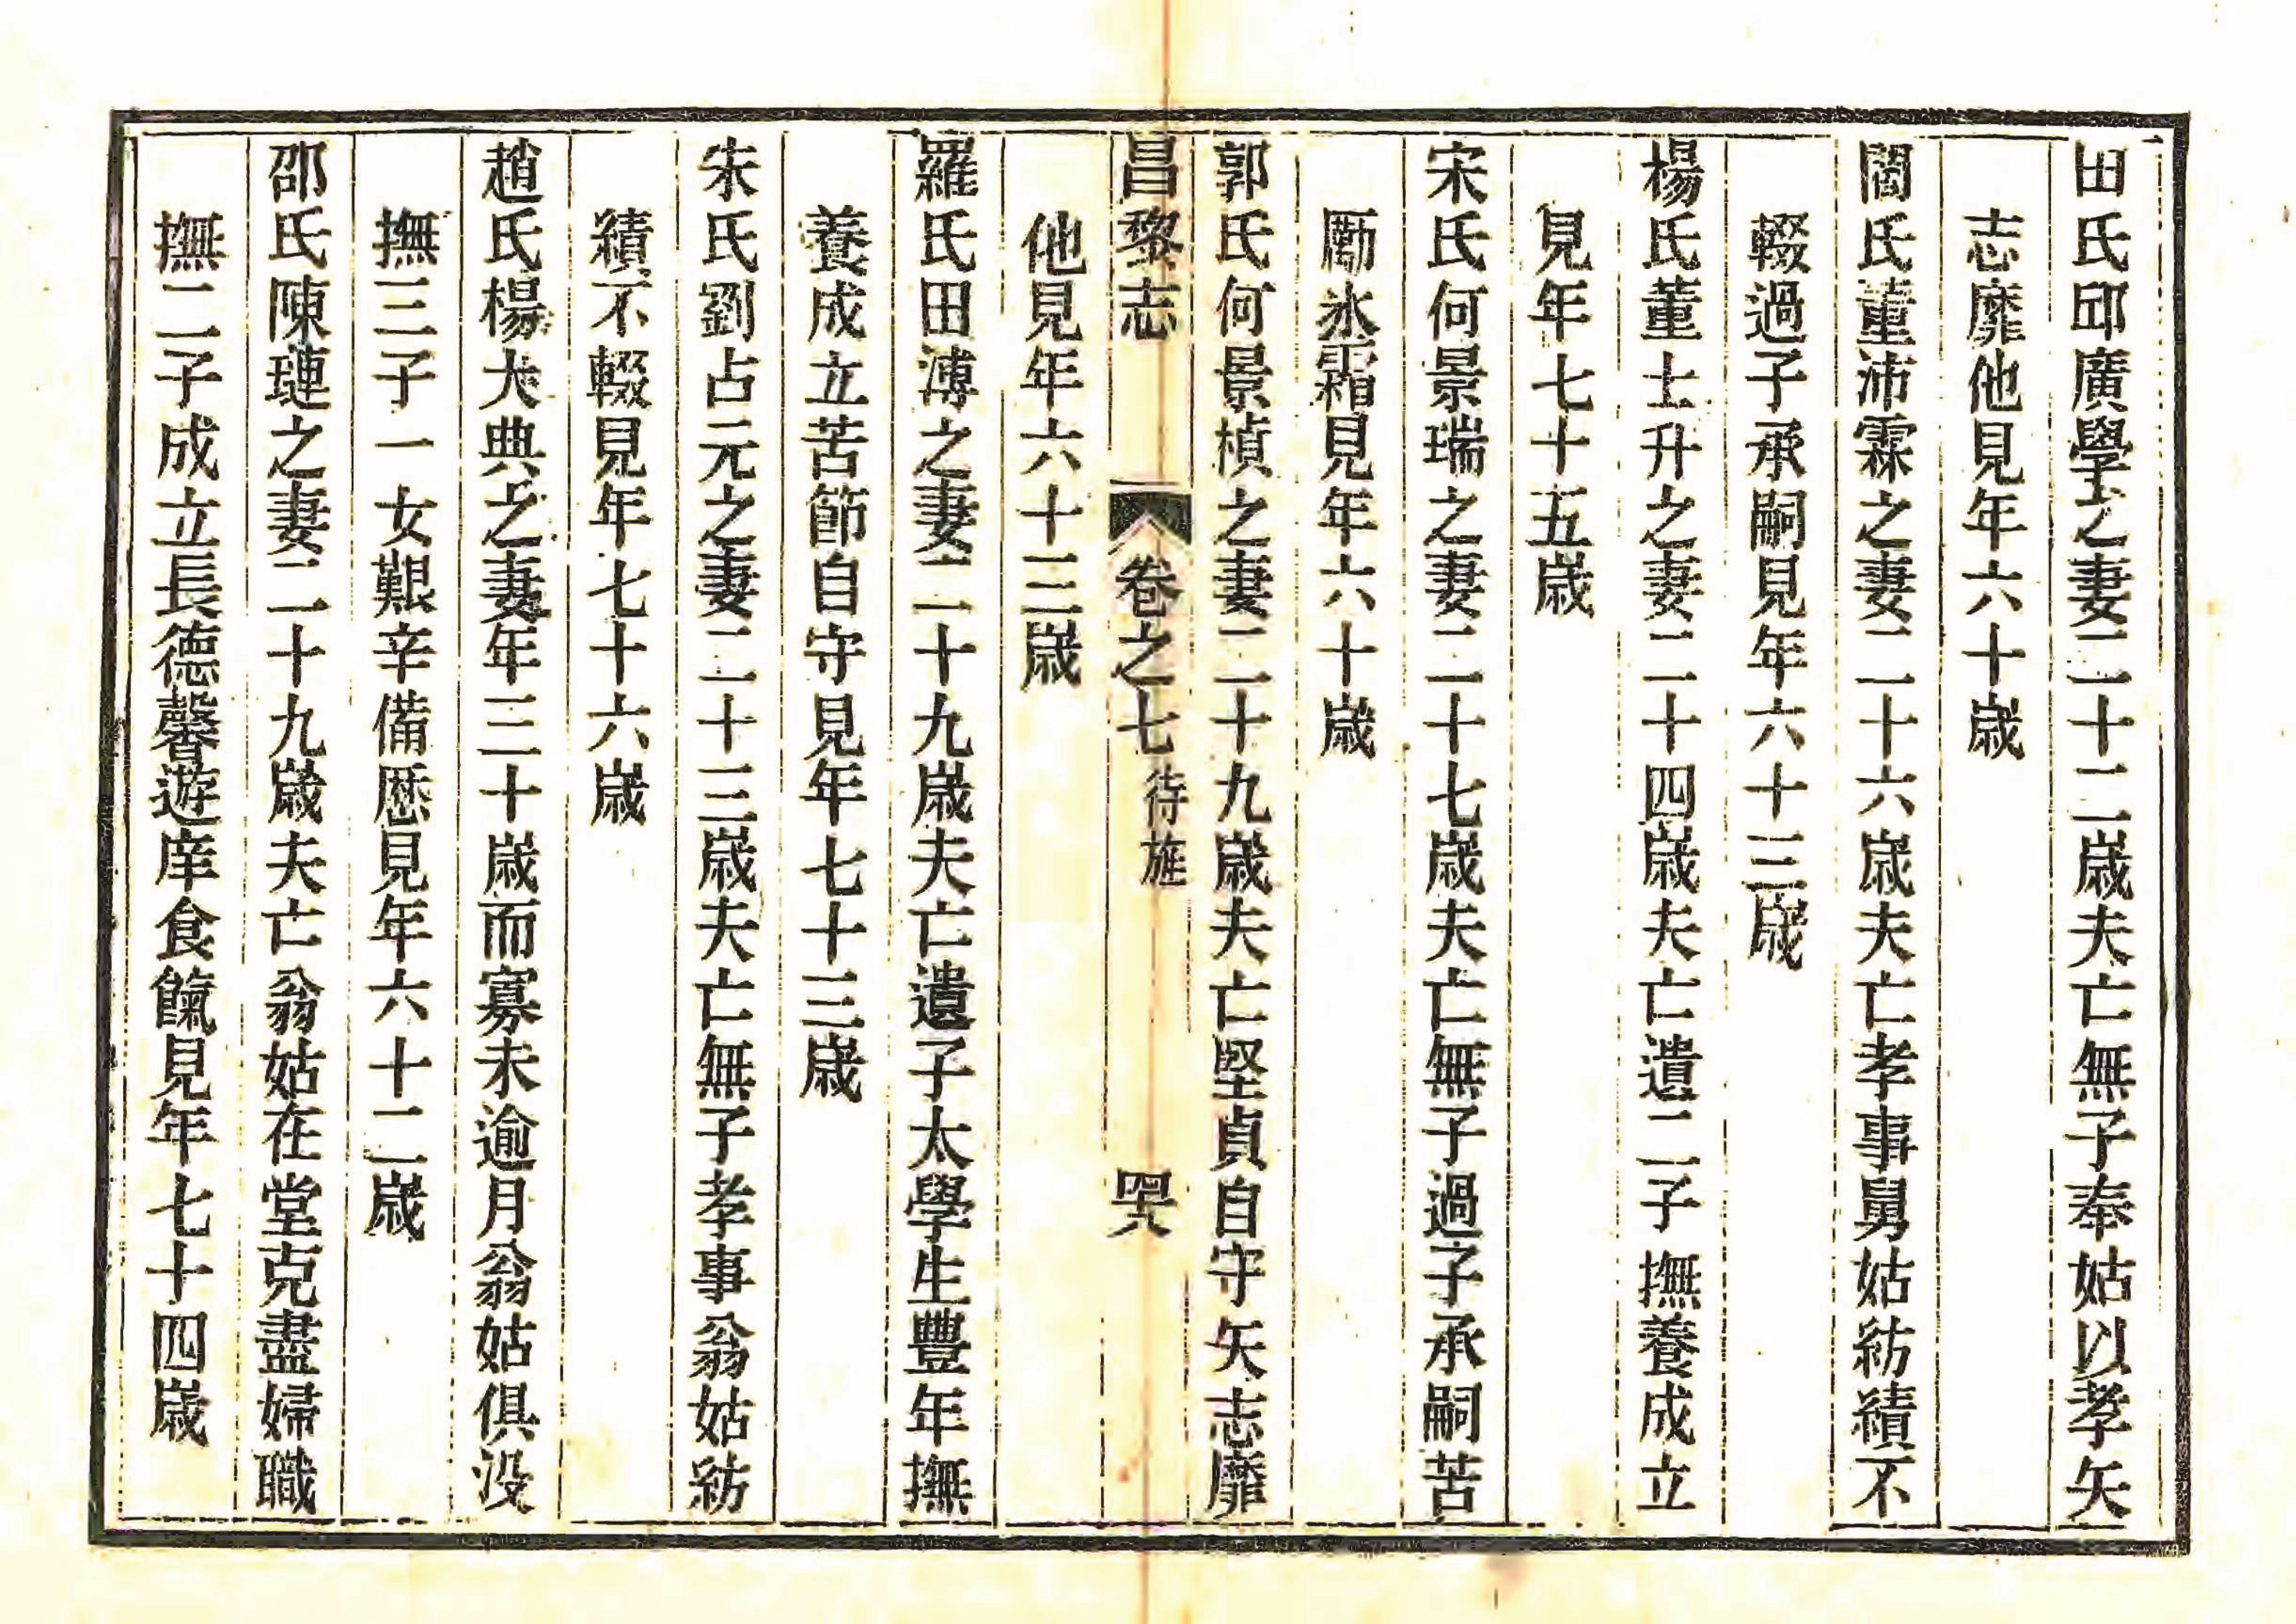 田氏邱廣學之妻二十二歲夫亡無子奉姑以孝矢
志靡他見年六十歲
閻氏董沛霖之妻二十六歲夫亡孝事舅姑紡績不
輟過子承嗣見年六十三歲
楊氏董士升之妻二十四歲夫亡遺二子撫養成立
見年七十五歲
宋氏何景瑞之妻二十七歲夫亡無子過子承嗣苦
厲冰霜見年六十歲
郭氏何景楨之妻二十九歲夫亡堅貞自守矢志靡
昌黎志 卷之七 待旌
他見年六十三歲
羅氏田溥之妻二十九歲夫亡遺子太學生豐年撫
養成立苦節自守見年七十三歲
朱氏劉占元之妻二十三歲夫亡無子孝事翁姑紡
績不輟見年七十六歲
趙氏楊大典之妻年三十歲而寡未逾月翁姑俱沒
撫三子一女艱辛備歷見年六十二歲
邵氏陳璉之妻二十九歲夫亡翁姑在堂克盡婦職
撫二子成立長德馨遊庠食餼見年七十四歲